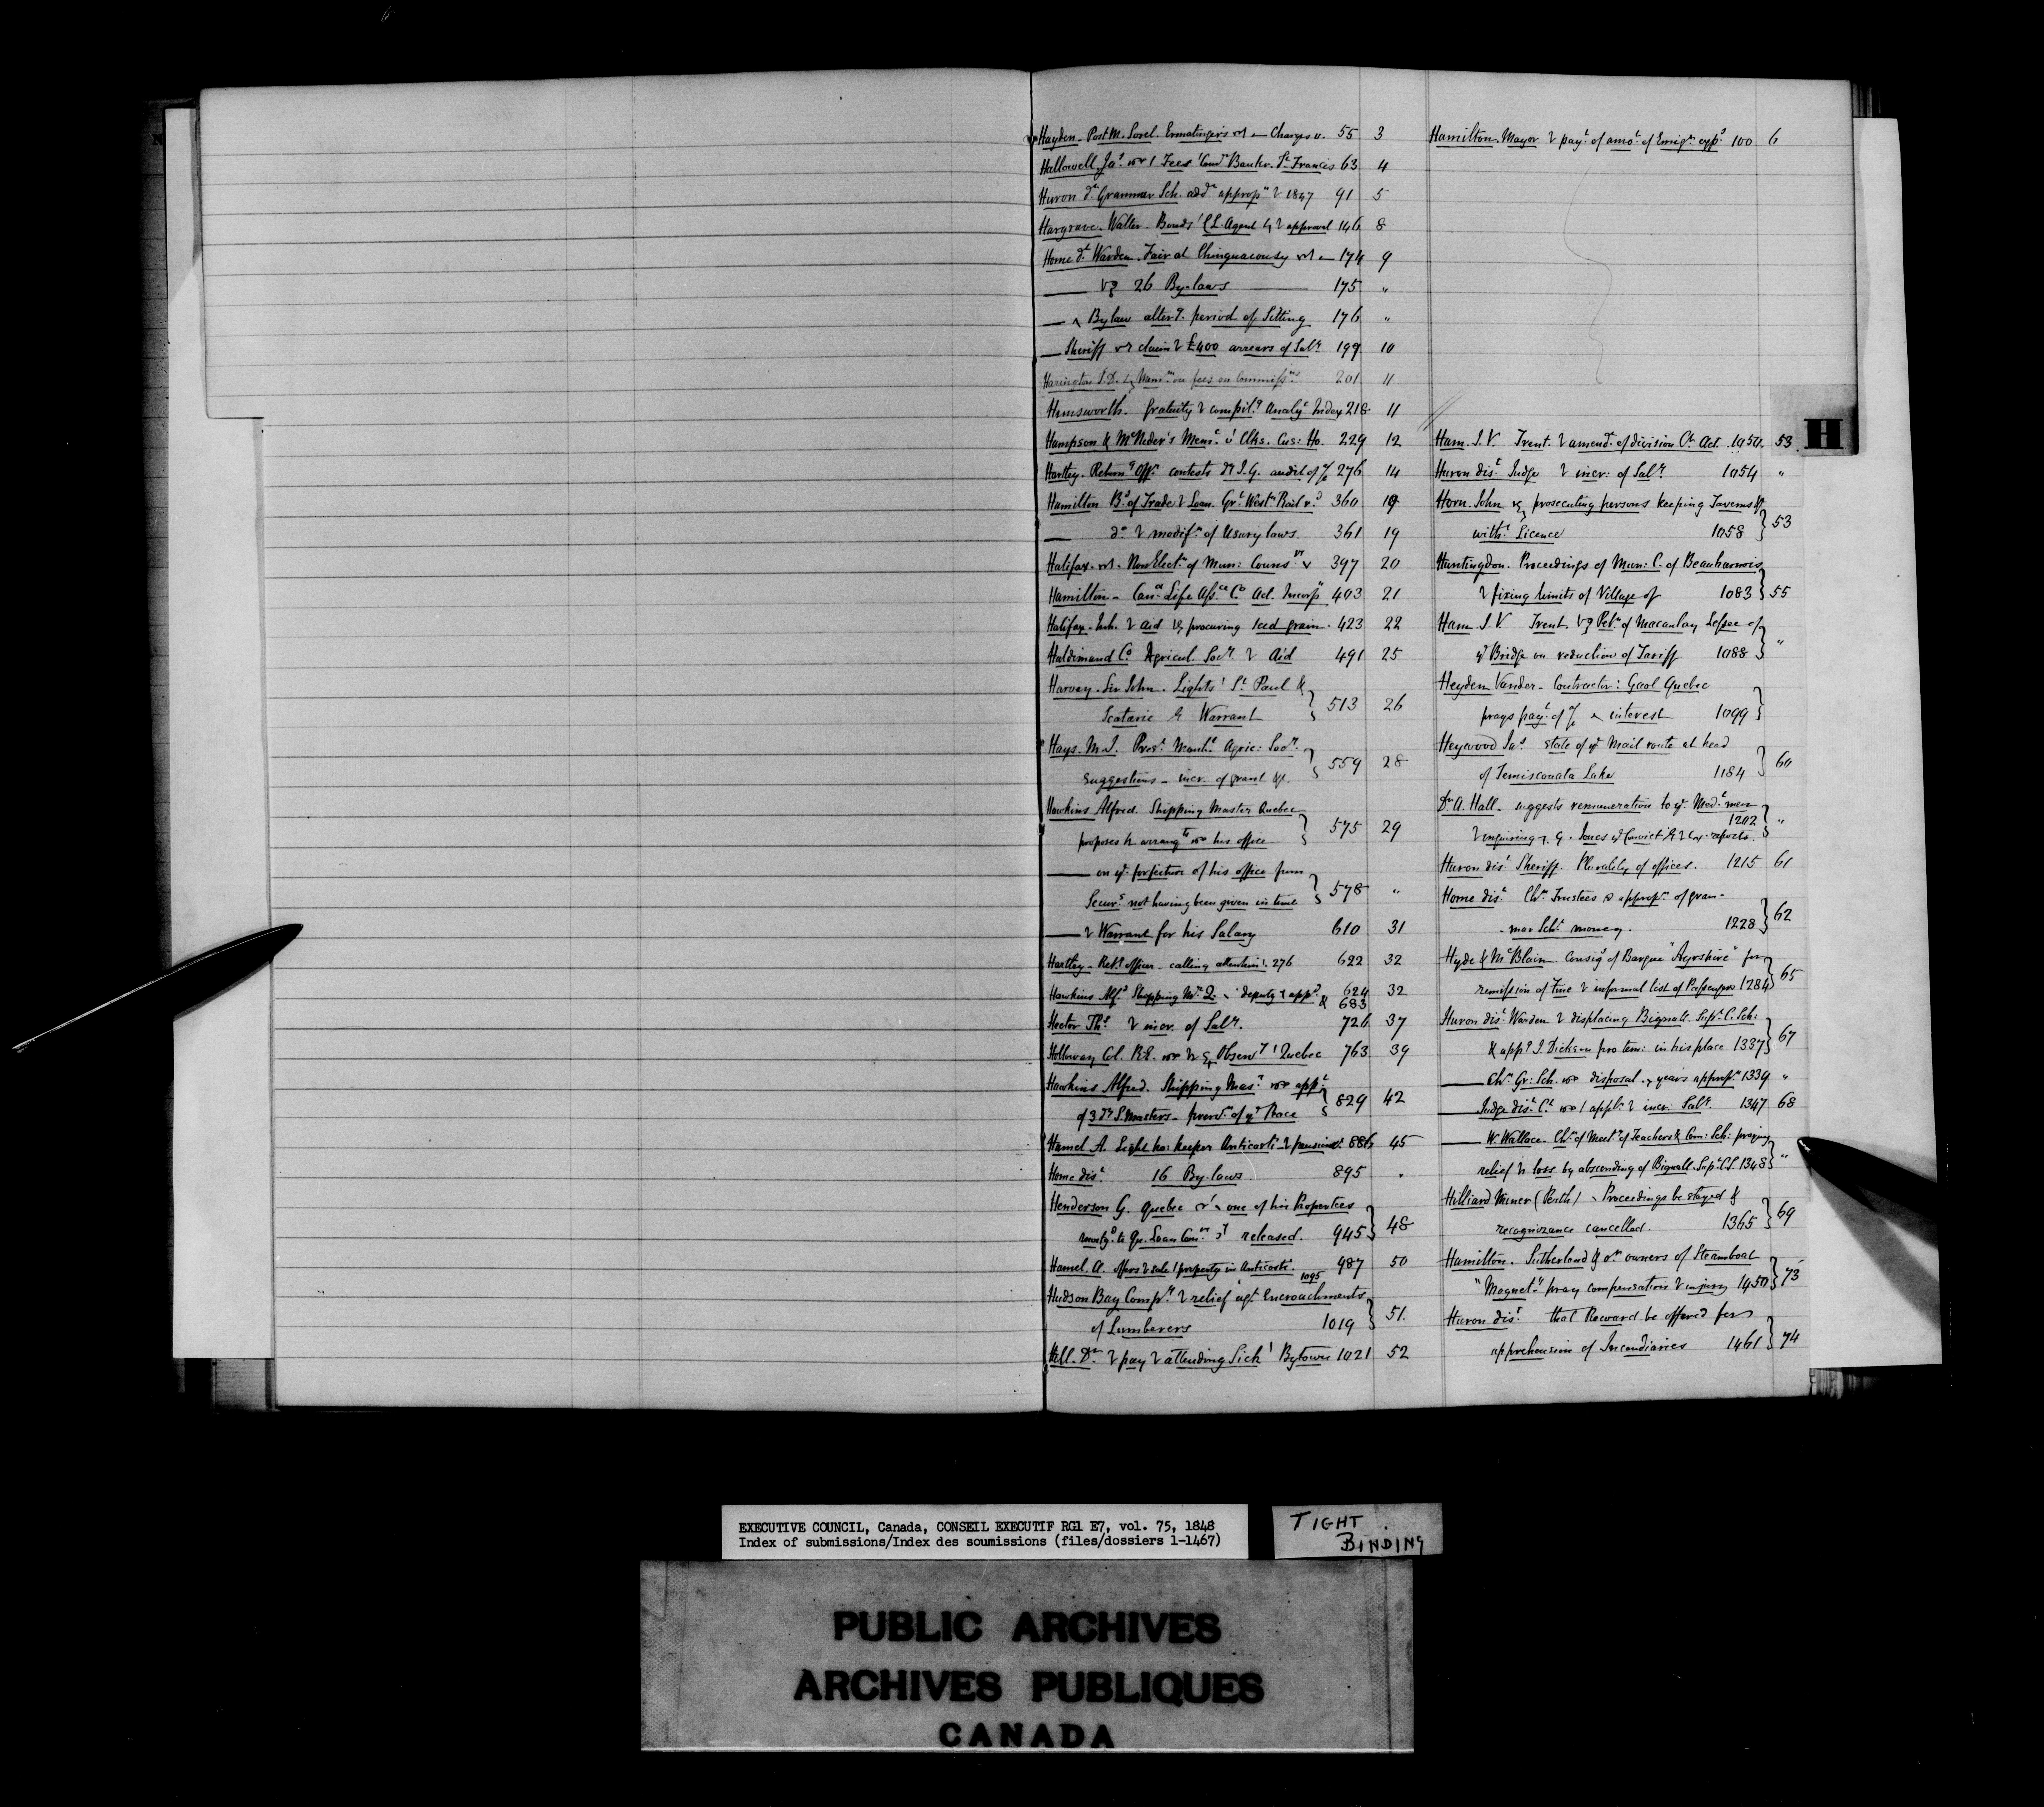 Hayden. Post M. Sorel. Ermatinger's Charges v. 55 3
Hallowell Ja.s Fees Com.r Bankr. S.t Francis 63 4
Huron d.t Grammar Sch. add.l approp.n 1847 91 5
Hargrave. Walter. Bonds C L. Agent approval 146 8
Home d.t Warden. Fair at Chinguacousy 174 9
26 By-laws 175 "
By law alter.g period of Sitting 176 "
Sheriff claim £400 arrears of Sal.y 199 10
Harington T. D. on fees on Commiss.ns 201 11
Himsworth. Gratuity compil.g Analy.l Index 218 11
Hampson & Mem.l Clks. Cus: Ho. 229 12
Hartley. Return.g Off.r contests I. G. audit of 276 14
Hamilton B.d of Trade Loan. Gr.t West.n Rail r.d 360 19
d.o modif.n of Usury laws. 361 19
Halifax. Non Elect.n of Mun: Couns.rs 397 20
Hamilton - Can.a Life Ass.ce C.o Act. Incorp.n 403 21
Halifax. Inh. aid procuring seed grain. 423 22
Haldimand C.o Agricul. Soc.y Aid 491 25
Harvey. Sir John. Lights S.t Paul &
Scatarie Warrant 513 26
Hays. M. J. Pres.t Mont.l Agric: Soc.y
Suggestions - incr. of grant &c. 559 28
Hawkins Alfred. Shipping Master Quebec
proposes arrang.ts his office 575 29
on forfeiture of his office from
Secur.s not having been given in time 578 "
Warrant for his Salary 610 31
Hartley - Ret.g officer - calling attention 276 622 32
Hawkins Alf.d Shipping M.r Q. deputy app.d 624 & 683 32
Hector Th.s incr. of Sal.y. 726 37
Holloway Col. R. E. Observ.y Quebec 763 39
Hawkins Alfred. Shipping Mas.r app.t
of 3 S. Masters - prev.n of Race 829 42
Hamel A. Light ho: keeper Anticosti pension 886 45
Home dis.t 16 By-laws. 895 "
Henderson G. Quebec one of his Properties
to Qu. Loan Com.rs released. 945 48
Hamel A. offers sale property in Anticosti. 1095 987 50
Hudson Bay Comp.y relief ag.t Encroachments
of Lumberers 1019 51.
Hill. D.r pay attending Sick Bytown 1021 52
Hamilton. Mayor pay.t of amo.t of Emig.n exp.s 100 6
H
Ham. J. V Trent. amend.t of division C.t Act. 1050. 53.
Huron dis.t Judge incr: of Sal.y 1054 "
Horn. John prosecuting persons keeping Taverns
with.t Licence 1058 53
Huntingdon. Proceedings of Mun: C. of Beauharnois
fixing limits of Village of 1083 55
Ham. J. V Trent. Pet.n of Macaulay Lessee of
Bridge on reduction of Tariff 1088 "
Heyden Vander - Contractor: Gaol Quebec
prays pay.t of interest 1099
Heywood Ja.s state of Mail route at head
of Temiscouata Lake 1184 60
D.r A. Hall - suggests remuneration to Med.l men
enquiring G. Jones Convict reports. 1202 "
Huron dis.t Sheriff. Plurality of offices. 1215 61
Home dis.t Ch.n Trustees approp.n of gram-
mar Sch.l money. 1228 62
Hyde & M.c Blain. Consig.s of Barque "Ayrshire" for
remission of Fine informal list of Passengers 1284 65
Huron dis.t Warden displacing Bignall. Sup.t C. Sch:
& app.g J. Dickson pro tem: in his place 1337 67
Ch.n Gr: Sch. disposal years approp.n 1339 "
Judge dis.t C.t appl.n incr: Sal.y. 1347 68
W. Wallace. Ch.n of Meet.g of Teachers Com: Sch: praying
relief loss by absconding of Bignall. Sup.t C.S. 1348 "
Hilliard Miner (Perth) Proceedings be stayed &
recognizance cancelled. 1365 69
Hamilton. Sutherland & o.rs owners of Steamboat
"Magnet" pray compensation injury 1450 73
Huron dis.t that Reward be offered for
apprehension of Incendiaries 1461 74
EXECUTIVE COUNCIL, Canada, CONSEIL EXECUTIF RG1 E7, vol. 75, 1848
Index of submissions/Index des soumissions (files/dossiers 1-1467)
TIGHT
BINDING
PUBLIC ARCHIVES
ARCHIVES PUBLIQUES
CANADA